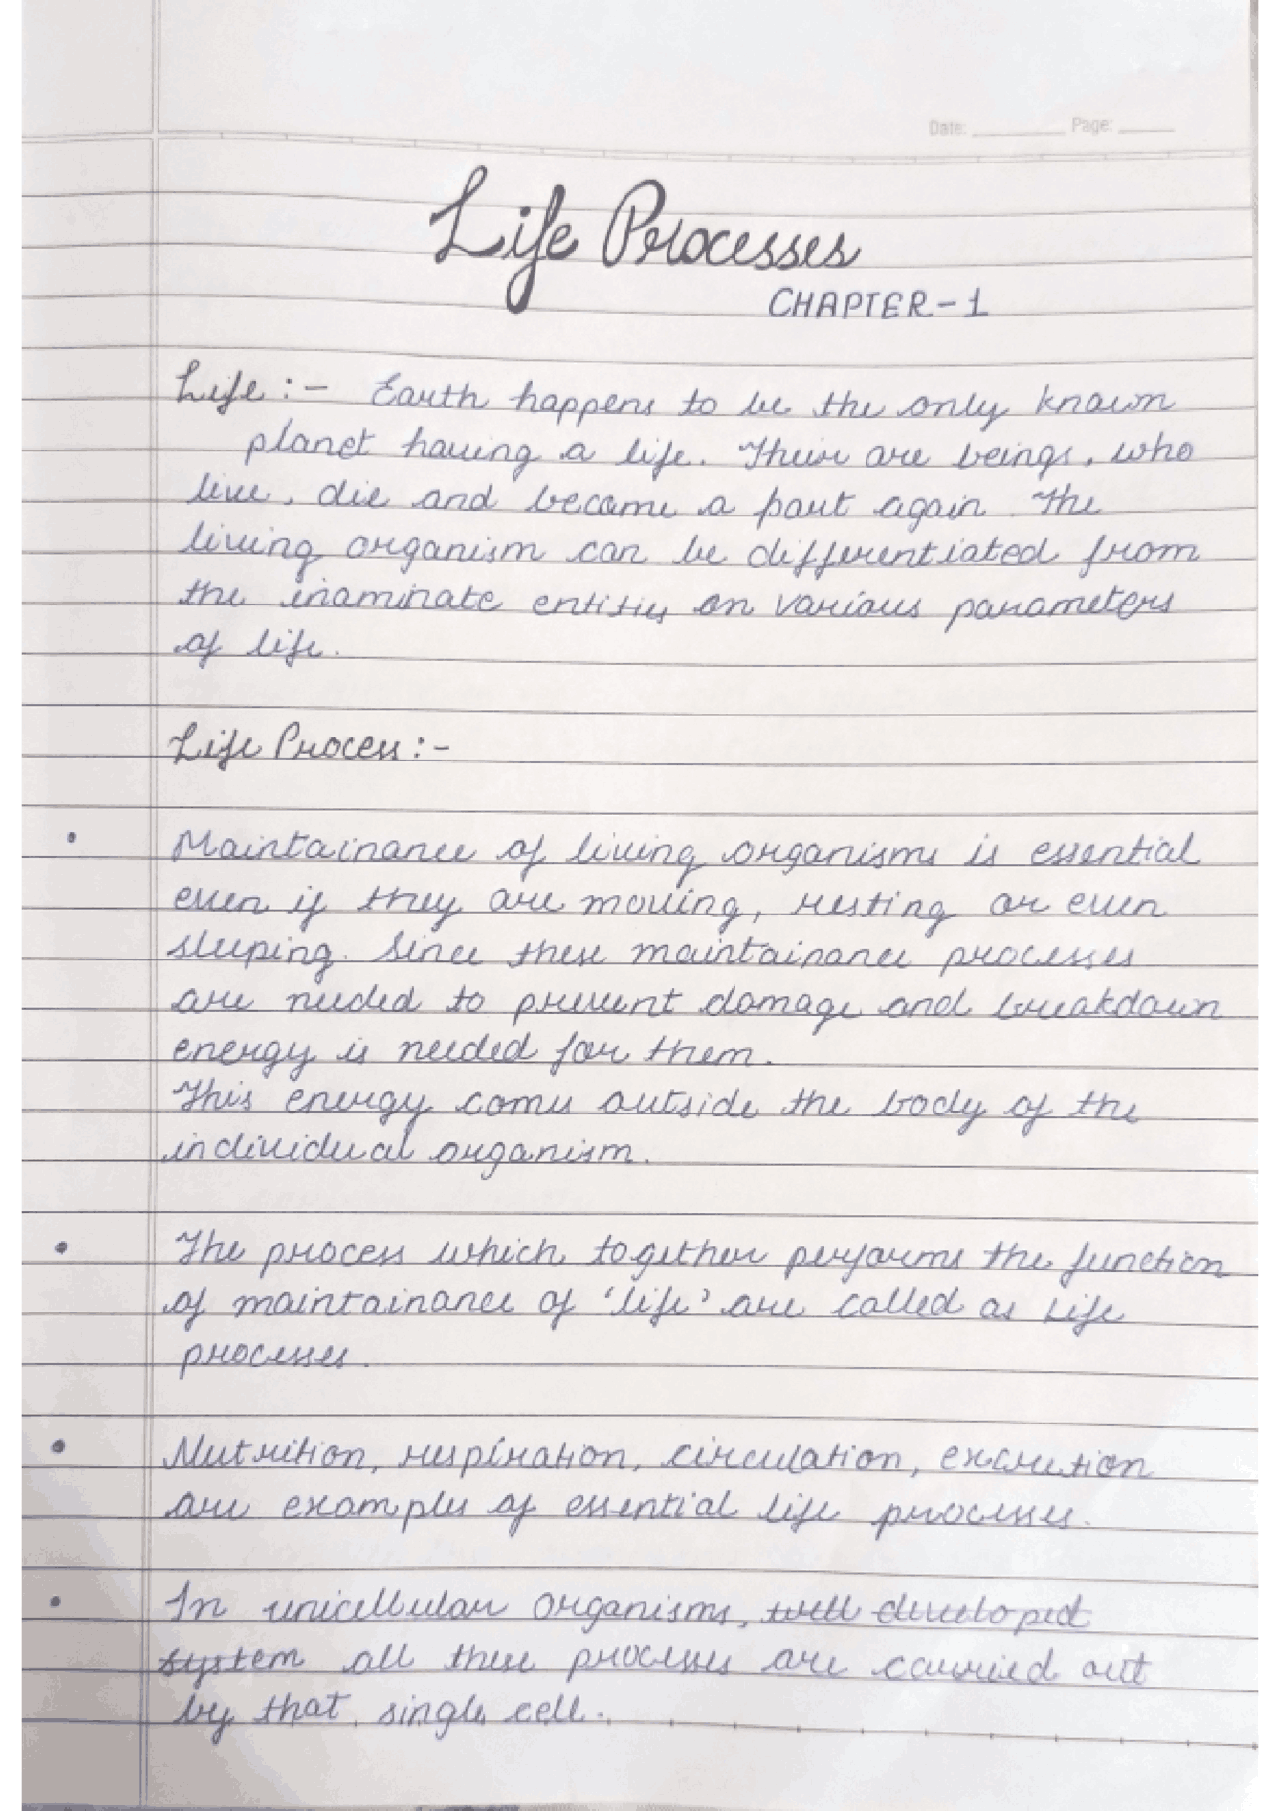 Date: Page:
Life Processes
CHAPTER-1
Life :- Earth happens to be the only known
planet having a life. Their are beings, who
live, die and become a part again. The
living organism can be differentiated from
the inaminate entities on various parameters
of life.
Life Process :-
• Maintainance of living organisms is essential
even if they are moving, resting or even
sleeping. Since these maintainance processes
are needed to prevent damage and breakdown
energy is needed for them.
This energy comes outside the body of the
individual organism.
• The process which together performs the function
of maintainance of 'life' are called as Life
processes.
• Nutrition, respiration, circulation, excretion
are examples of essential life processes.
• In unicellular organisms, well developed
system all these processes are carried out
by that single cell.